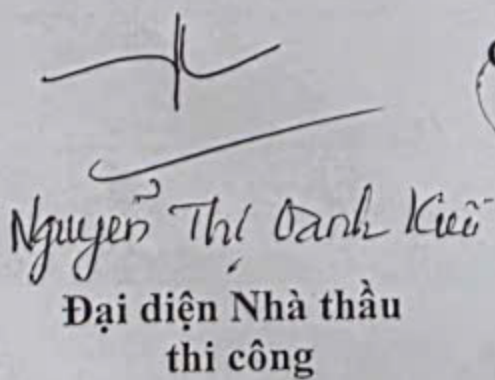 Nguyễn Thị Oanh Kiều
Đại diện Nhà thầu
thi công